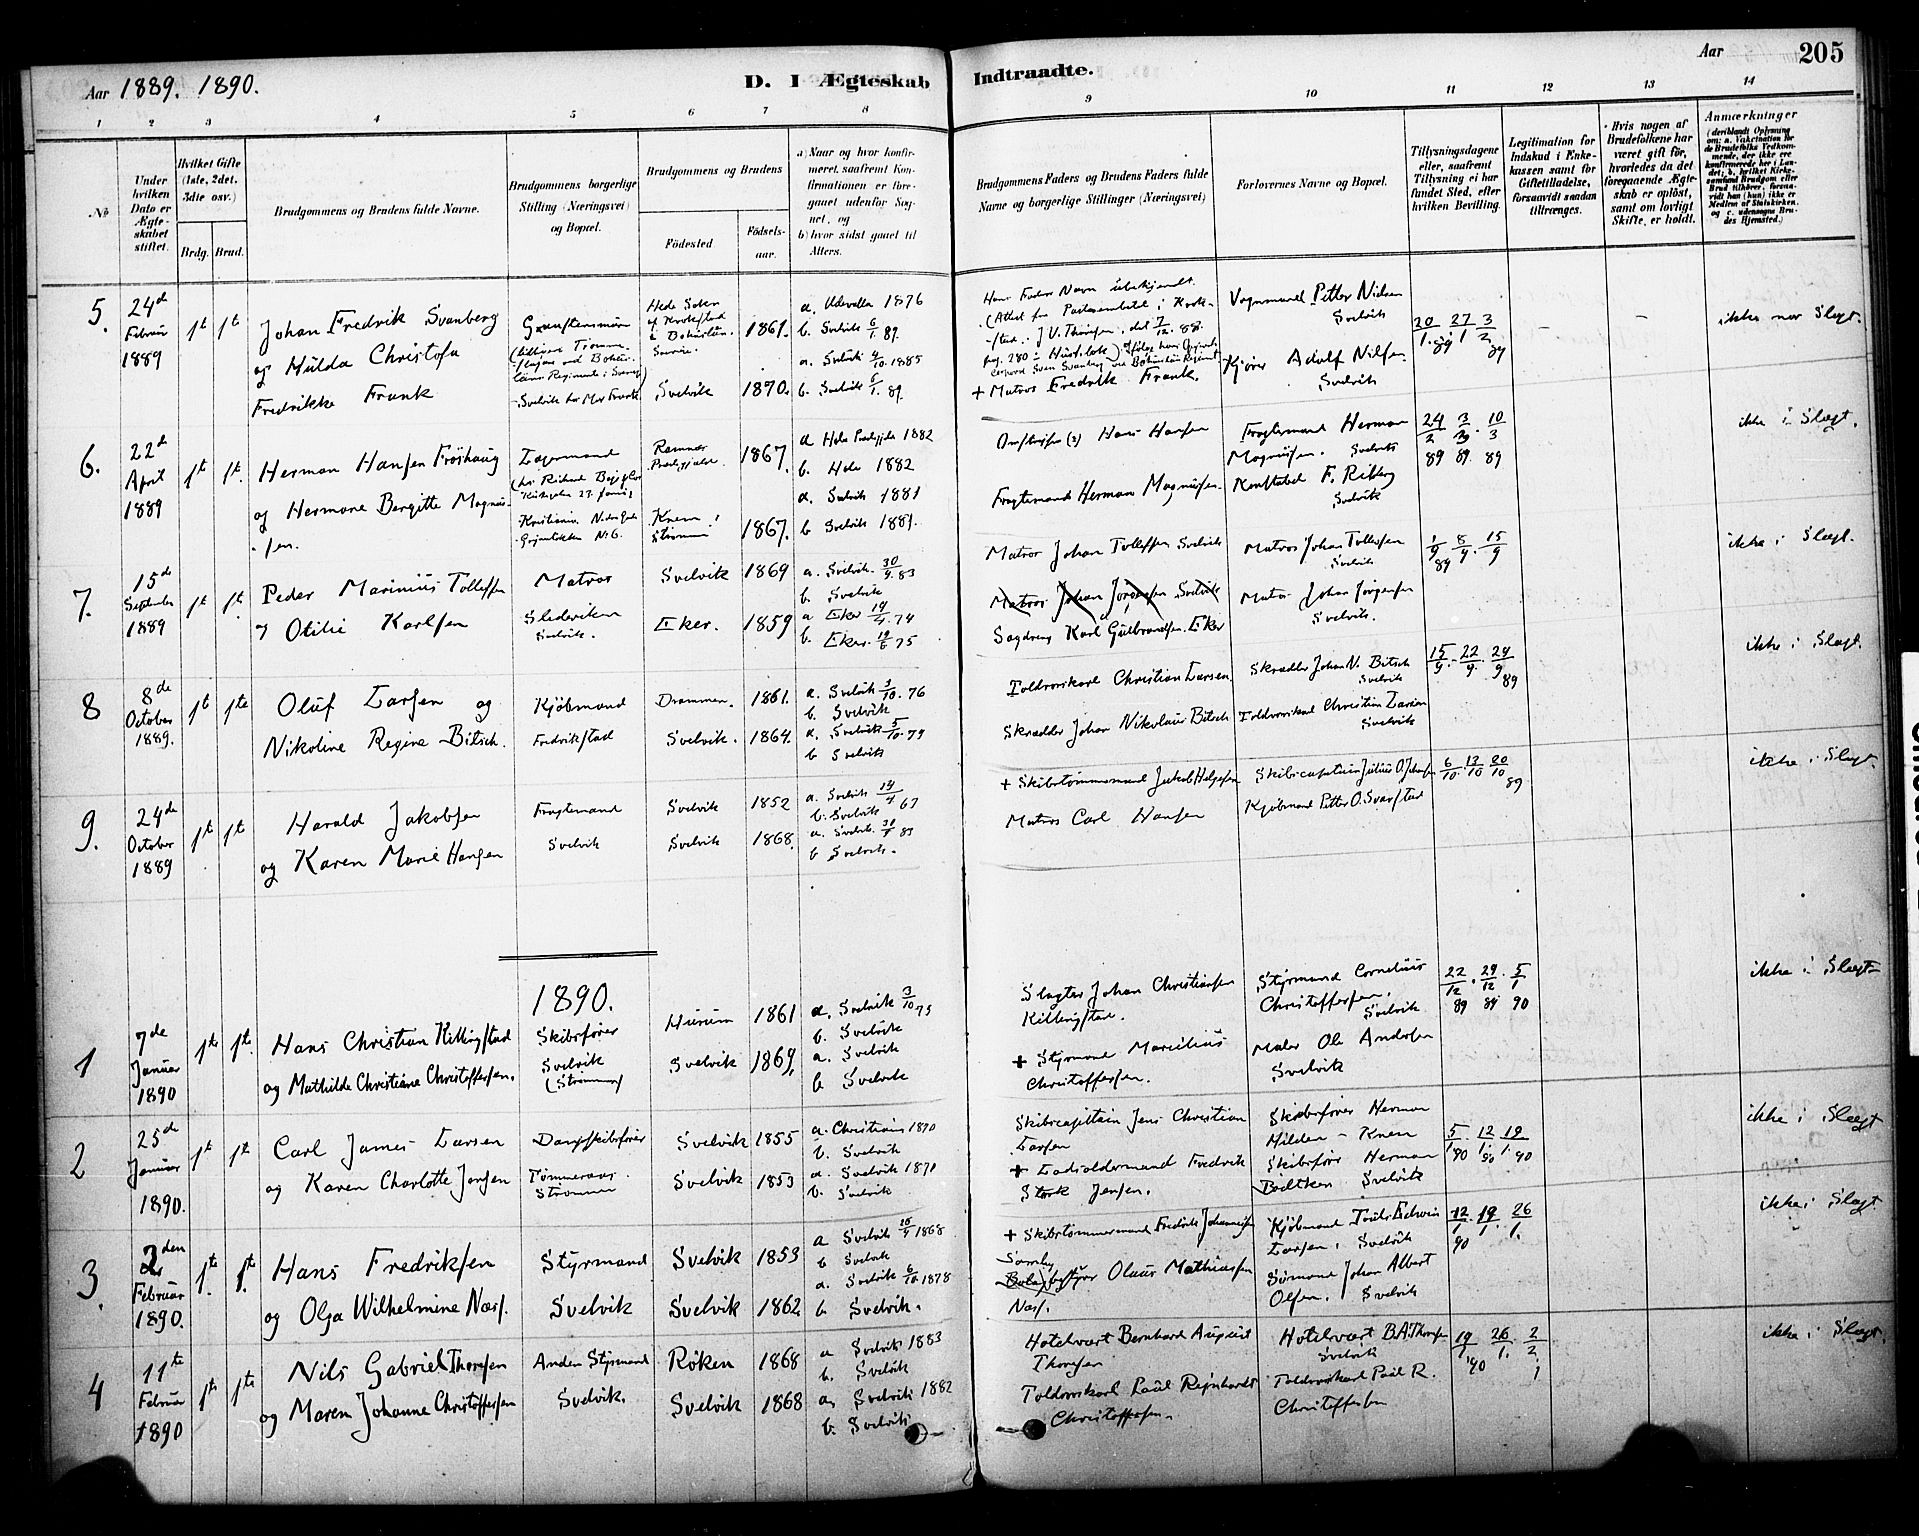 Aar 1889. 1890.
D. I Ægteskab Indtraadte.
Aar 205
1 2 3 4 5 6 7 8 9 10 11 12 13 14
No
Under hvilken Dato er Ægteskabet stiftet.
Hvilket Gifte (1ste, 2det, 3die osv.)
Brdg. Brud.
Brudgommens og Brudens fulde Navne.
Brudgommens borgerlige Stilling (Næringsvei) og Bopæl.
Brudgommens og Brudens
Födested.
Födsels-aar.
a) Naar og hvor konfirmeret, saafremt Konfirmationen er foregaaet udenfor Sognet, og
b) hvor sidst gaaet til Alters.
Brudgommens Faders og Brudens Faders fulde Navne og borgerlige Stillinger (Næringsvei)
Forlovernes Navne og Bopæl.
Tillysningsdagene eller, saafremt Tillysning ei har fundet Sted, efter hvilken Bevilling.
Legitimation for Indskud i Enkekassen samt for Giftetilladelse, forsaavidt saadan tiltrænges.
Hvis nogen af Brudefolkene har været gift för, hvorledes da det foregaaende Ægteskab er oplöst, samt om lovligt Skifte, er holdt.
Anmærkninger
5. 24de Februar 1889 1ste 1ste
Johan Fredrik Svanberg
og Hulda Christofa
Fredrikke Frank
1861. a. Udevalla 1876
b. Svelvik 6/1. 89.
Svelvik 1870. a. Svelvik 1885
b. Svelvik 6/1. 89.
+ Matros Fredrik Frank.
Vognmand Petter Nielsen
Svelvik
Kjører Adolf Nilsen
Svelvik
20/1. 89 27/1 3/2 89
ikke nær Slegt.
6. 22de April 1889 1ste 1ste
Herman Hansen Fröshaug
og Hermone Bergitte Magnus-
sen.
Lagermand
Ramnæs Prestegjæld. 1867.
a Hole Prestegjeld 1882
b. Hole 1882
Strømm 1867.
a. Svelvik 1881
b Svelvik 1889.
Hans Hansen
Fragtemand Herman Magnussen
Fragtemand Herman
Magnussen. Svelvik
Konstabel F. Riberg
Svelvik
24/2 89 3/3 89. 10/3 89
ikke i Slægt.
7. 15de September 1889 1ste 1ste
Peder Marinius Tollefsen
og Otilie Karlsen
Matros
Svelvik.
Svelvik 1869 a. Svelvik. 30/9. 83
b. Svelvik
Eker. 1859 a Eker 19/4. 74
b. Eker. 75
Matros Johan Tollefsen Svelvik
Matros Johan Jörgensen Svelvik
Sagdreng Karl Gulbrandsen. Eker
Matros Johan Tollefsen
Svelvik
Matros Johan Jörgensen
Svelvik.
1/9 89 8/9 15/9
ikke i Slægt.
8 8de October 1889. 1ste 1ste
Oluf Larsen og
Nikoline Regine Bitsch.
Kjöbmand
Fredrikstad
Drammen. 1861. a. Svelvik 76
b. Svelvik
Svelvik. 1864. a. Svelvik 5/10. 79
b Svelvik
Toldrorskarl Christian Larsen
Skrædder Johan Nikolaus Bitsch
Skrædder Johan N. Bitsch
Svelvik
Toldrorskarl Christian Larsen
Svelvik
15/9. 22/9. 29/9 89
ikke i Slægt.
9. 24de October 1889 1ste 1ste
Harald Jakobsen
og Karen Marie Hansen
Fragtemand
Svelvik
Svelvik 1852 a. Svelvik 67
b. Svelvik
Svelvik 1868. a. Svelvik 83
b Svelvik.
+ Skibstømmermand Jakob Helgesen
Matros Carl Hansen
Skibscapitain Julius O. Johnsen
Kjöbmand Petter O. Svarstad
6/10 13/10 20/10 89
ikke i Slægt.
1890.
1 7de Januar 1890 1ste 1ste
Hans Christian Killingstad
og Mathilde Christiane Christoffersen.
Skibsfører
Svelvik
(Strømm)
Hurum 1861 a. Svelvik 3/10 75
b. Svelvik
Svelvik 1869, a. Svelvik
b Svelvik
Slagter Johan Christiansen
Killingstad.
+ Styrmand Marcelius
Christoffersen.
Styrmand Cornelius
Christoffersen.
Svelvik
Maler Ole Andersen
Svelvik
22/12 89 29/12 89 5/1 90
ikke i Slægt
2 25de Januar 1890. 1ste 1ste
Carl James Larsen
og Karen Charlotte Jensen
Dampskibsfører
Tømmeraas.
Strømm
Svelvik 1855 a. Christiania 1870
b. Svelvik
Svelvik 1853 a. Svelvik 1871
b. Svelvik
Skibscapitain Jens Christian
Larsen
+ Lodsoldermand Fredrik
Stork Jensen.
Skibsfører Herman
Hilden - Knem
Skibsfører Herman
Bødtker Svelvik
5/1 90 12/1. 90 19/1. 90
ikke i Slægt
3. 3den Februar 1890. 1ste 1ste
Hans Fredriksen
og Olga Wilhelmine Næss.
Styrmand
Svelvik
Svelvik 1853 a Svelvik 1868
b Svelvik
Svelvik 1862 a. Svelvik 6/10 1878
b Svelvik.
+ Skibstømmermand Fredrik Johannesen
Olaus Mathiassen
Næss.
Kjöbmand Louis Edvin
Larsen. Svelvik
Sømand Johan Albert
Olsen. Svelvik
12/1 90 19/1. 26/1.
ikke i Slægt
4 11te Februar 1890 1ste 1ste
Nils Gabriel Thoresen
og Maren Johanne Christoffersen
Anden Styrmand
Svelvik.
Røken 1868 a Svelvik 1883
b. Svelvik
Svelvik 1868 a, Svelvik 1882
b. Svelvik
Hotelvært Bernhard August
Thoresen
Toldrorskarl Paul Reinhardt
Christoffersen.
Hotelvært B.A. Thoresen
Svelvik
Toldrorskarl Paul R.
Christoffersen
19/1. 90 26/1. 2/2.
ikke i Slægt.